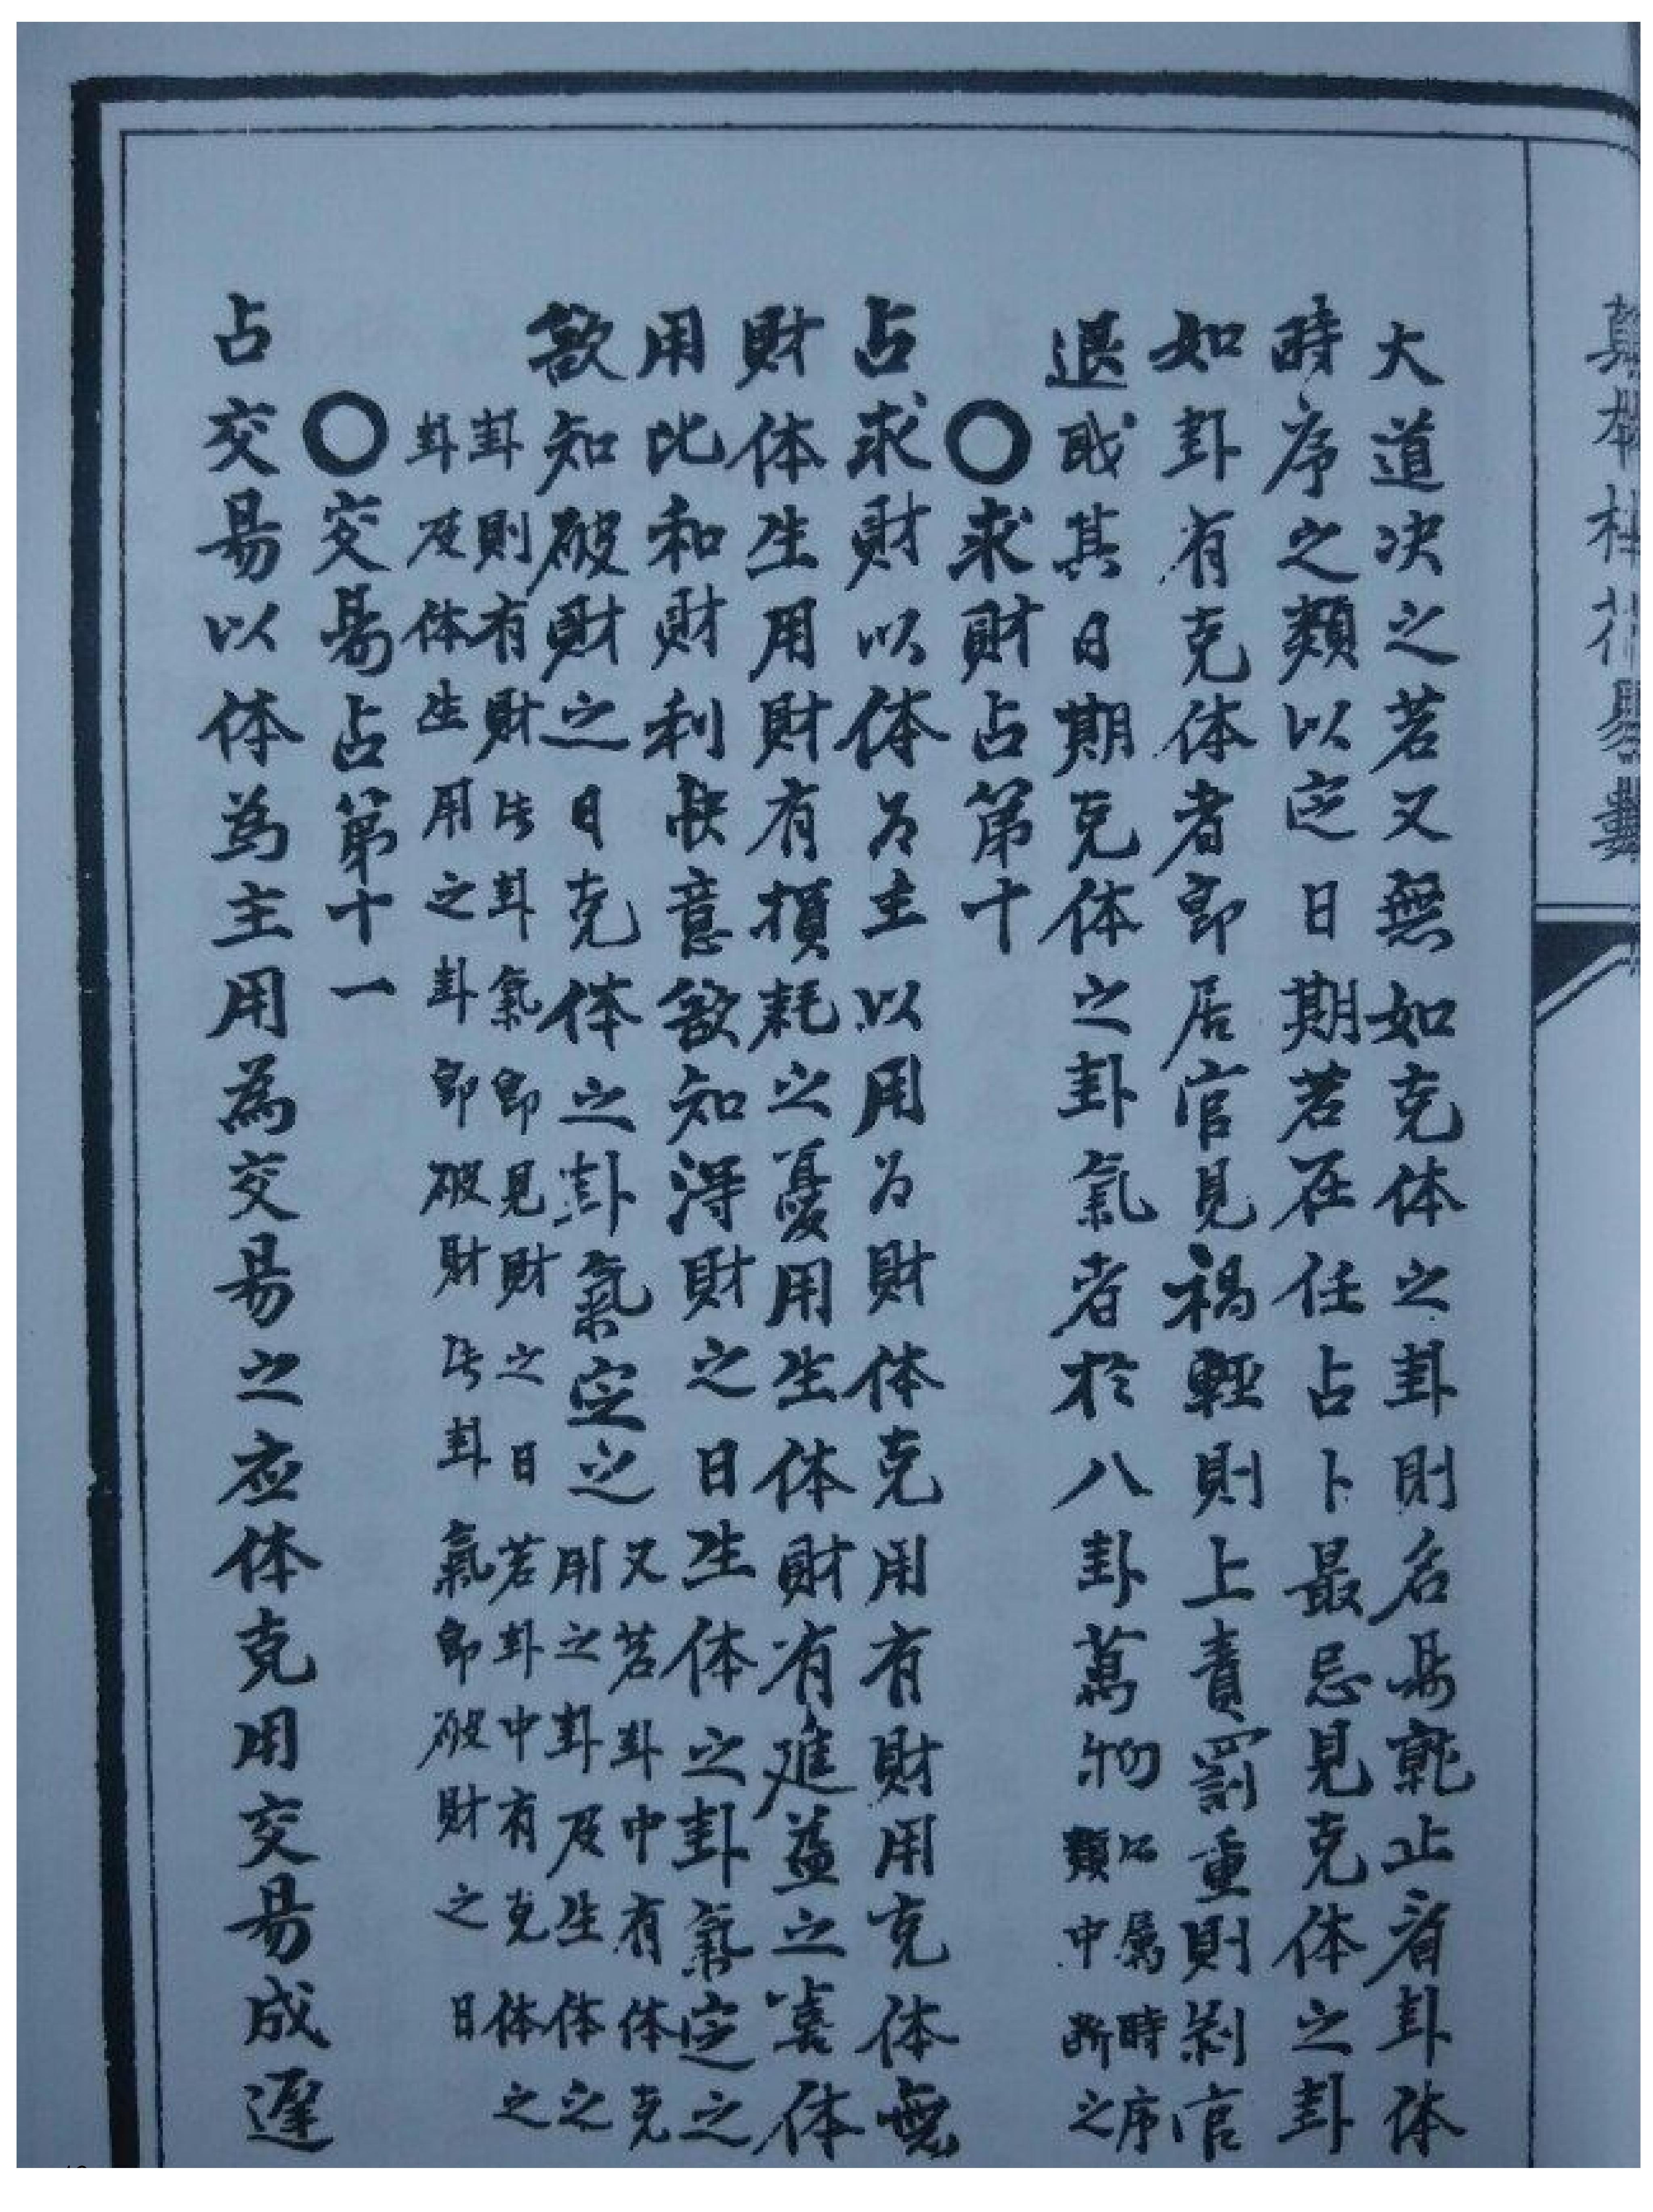 大道决之若又無如克体之卦則名易乾止看卦体
時序之類以定日期若在任占卜最忌見克体之卦
如卦有克体者即居官見禍輕則上責罰重則剝官
退或其日期克体之卦氣者於八卦萬物
屬時序
類中断之
〇求財占第十
占求財以体为主以用为財体克用有財用克体無
財体生用財有損耗之憂用生体財有進益之喜体
用比和財利快意欲知淂財之日生体之卦氣定之
欲知破財之日克体之卦氣定之
又若卦中有体克
用之卦及生体之
卦則有財此卦氣即見財之日若卦中有克体之
卦及体生用之卦即破財此卦氣即破財之日
〇交易占第十一
占交易以体為主用為交易之应体克用交易成遲